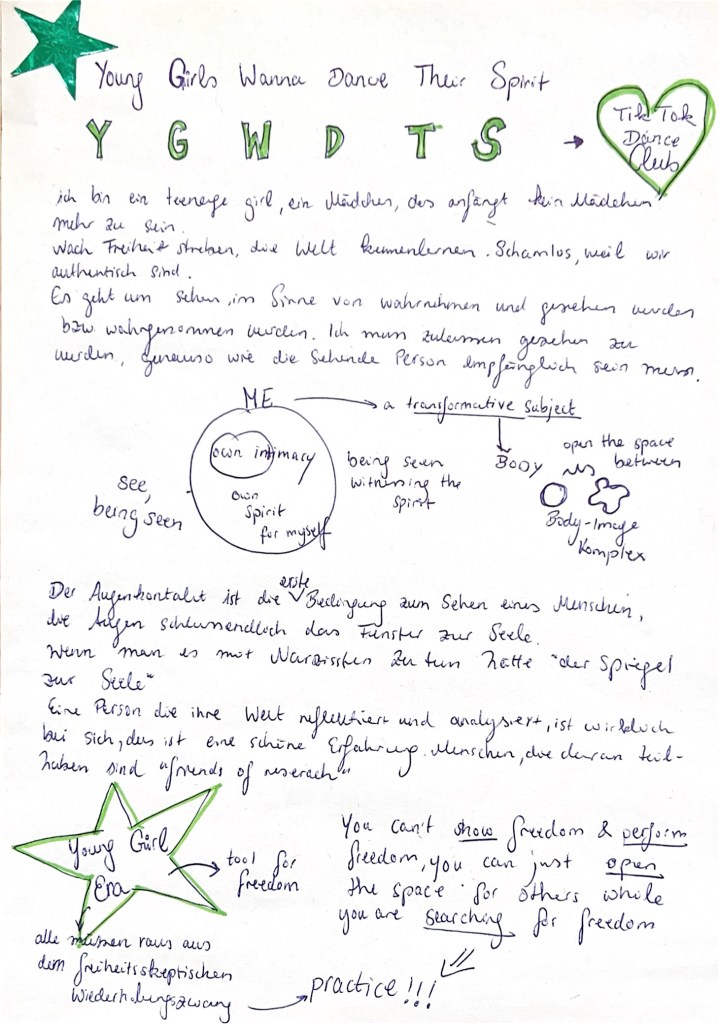 Young Girls Wanna Dance Their Spirit
Y G W D T S →
Tik Tok
Dance
Club
ich bin ein teenage girl, ein Mädchen, das anfängt kein Mädchen
mehr zu sein.
Nach Freiheit streben, die Welt kennenlernen. Schamlos, weil wir
authentisch sind.
Es geht um sehen, im Sinne von wahrnehmen und gesehen werden
bzw wahrgenommen werden. Ich muss zulassen gesehen zu
werden, genauso wie die Sehende Person empfänglich sein muss.
ME → a transformative subject
own intimacy
own
spirit
for myself
see,
being seen
being seen
witnessing the
spirit
Body
open the space
between
Body-Image
Komplex
Der Augenkontakt ist die erste Bedingung zum Sehen eines Menschen,
die Augen schlussendlich das Fenster zur Seele.
Wenn man es mit Narzissten zu tun hätte "der Spiegel
zur Seele"
Eine Person die ihre Welt reflektiert und analysiert, ist wirklich
bei sich, das ist eine schöne Erfahrung. Menschen, die daran teil-
haben sind "friends of reserach"
Young Girl
Era
→ tool for
freedom
alle müssen raus aus
dem freiheitsskeptischen
Wiederholungszwang
You can't show freedom & perform
freedom, you can just open
the space for others while
you are searching for freedom
→ practice!!!